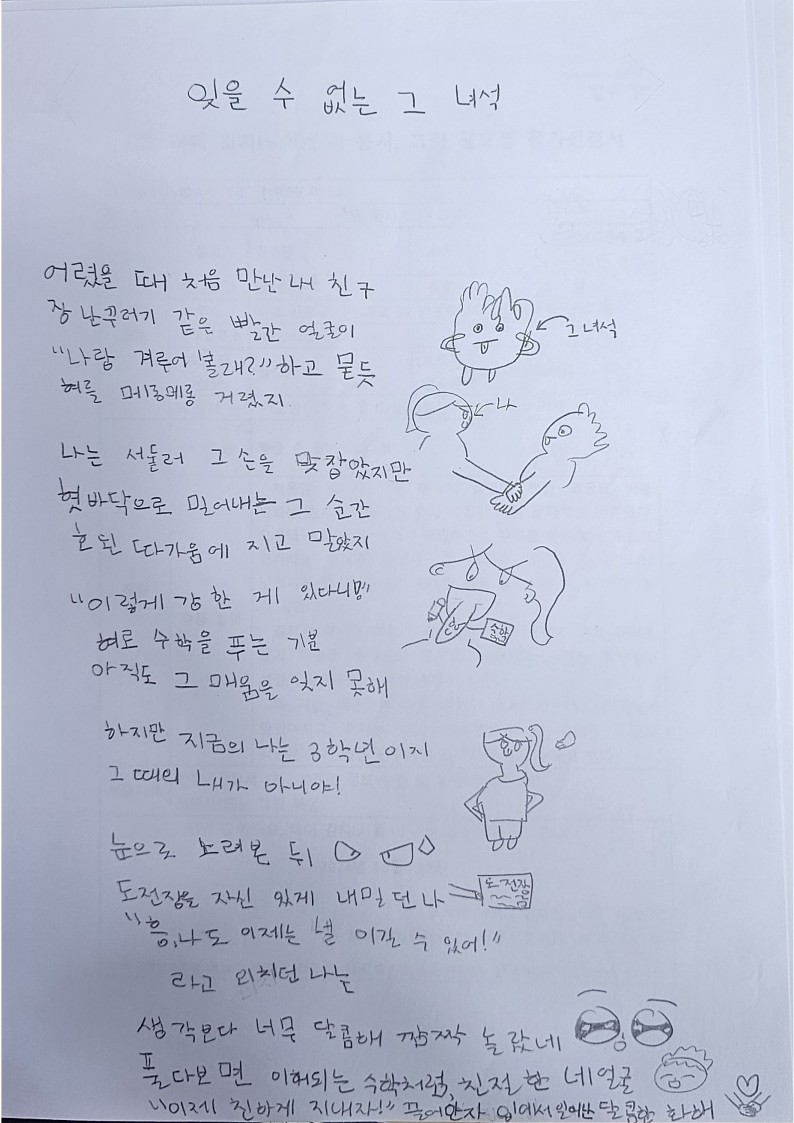 잊을 수 없는 그 녀석
어렸을 때 처음 만난 내 친구
장난꾸러기 같은 빨간 얼굴이
"나랑 겨루어 볼래?" 하고 묻듯
혀를 메롱메롱 거렸지.
그녀석
나
나는 서둘러 그 손을 맞잡았지만
혓바닥으로 밀어내는 그 순간
호된 따가움에 지고 말았지
"이렇게 강한 게 있다니!"
혀로 수학을 푸는 기분
아직도 그 매움을 잊지 못해
수학
하지만 지금의 나는 3학년이지
그 때의 내가 아니야!
눈으로 노려본 뒤
도전장을 자신 있게 내밀던 나
도전장
"흥, 나도 이제는 널 이길 수 있어!"
라고 외치던 나는
생각보다 너무 달콤해 깜짝 놀랐네
풀다보면 이해되는 수학처럼, 친절한 네 얼굴
"이제 친하게 지내자!" 끌어안자 입에서 일어난 달콤한 화해